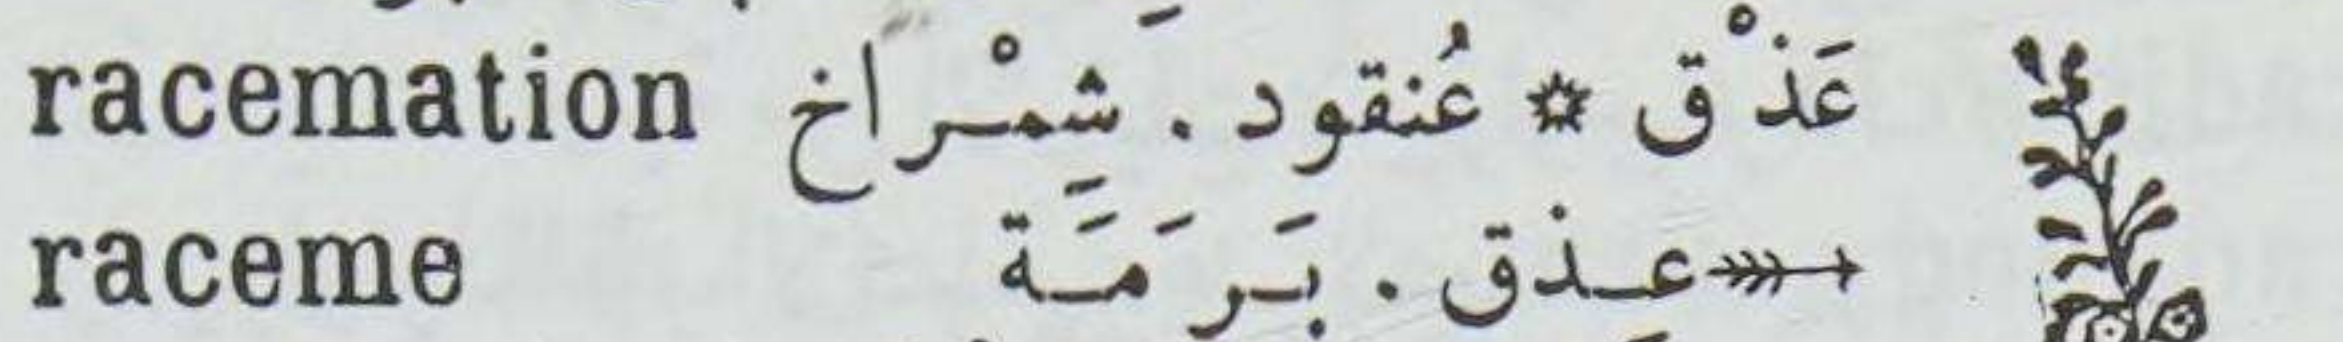 racemation عَذْق * عُنقود . شِمْراخ
raceme عِذق . بَرَمَة